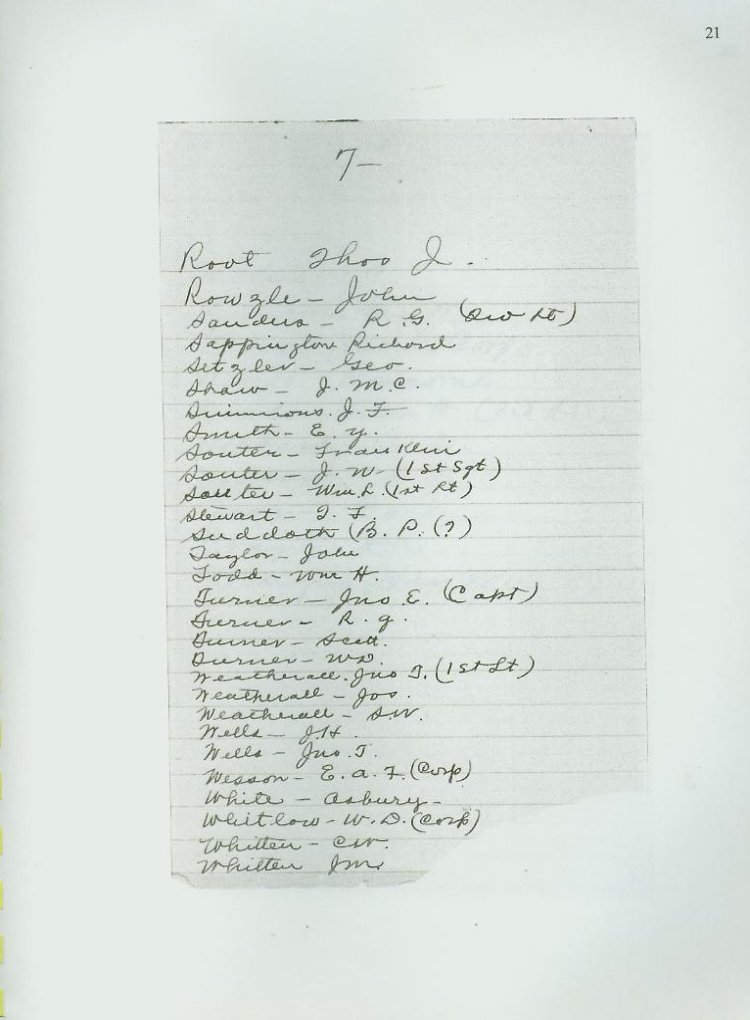 21
7—
Root Thos J.
Rowzle - John
Sanders - R. G. (2nd Lt)
Sappington Richard
Setzler - Geo.
Shaw - J. M. C.
Simmions. J. F.
Smith - E. Y.
Souter - Franklin
Souter - J. W. (1st Sgt)
Souter - Wm. L. (1st Lt)
Stewart - T. F.
Suddoth (B. P. (?)
Taylor - John
Todd - Wm H.
Turner - Jno E. (Capt)
Turner - R. G.
Turner - Scott
Turner - WD.
Weatherall. Jno T. (1st Lt)
Weatherall - Jos.
Weatherall - S.W.
Wells - J.H.
Wells - Jno. T.
Wesson - E. A. F. (Corp)
White - Asbury -
Whitlow - W. D. (Corp)
Whitten - CW.
Whitten JM.